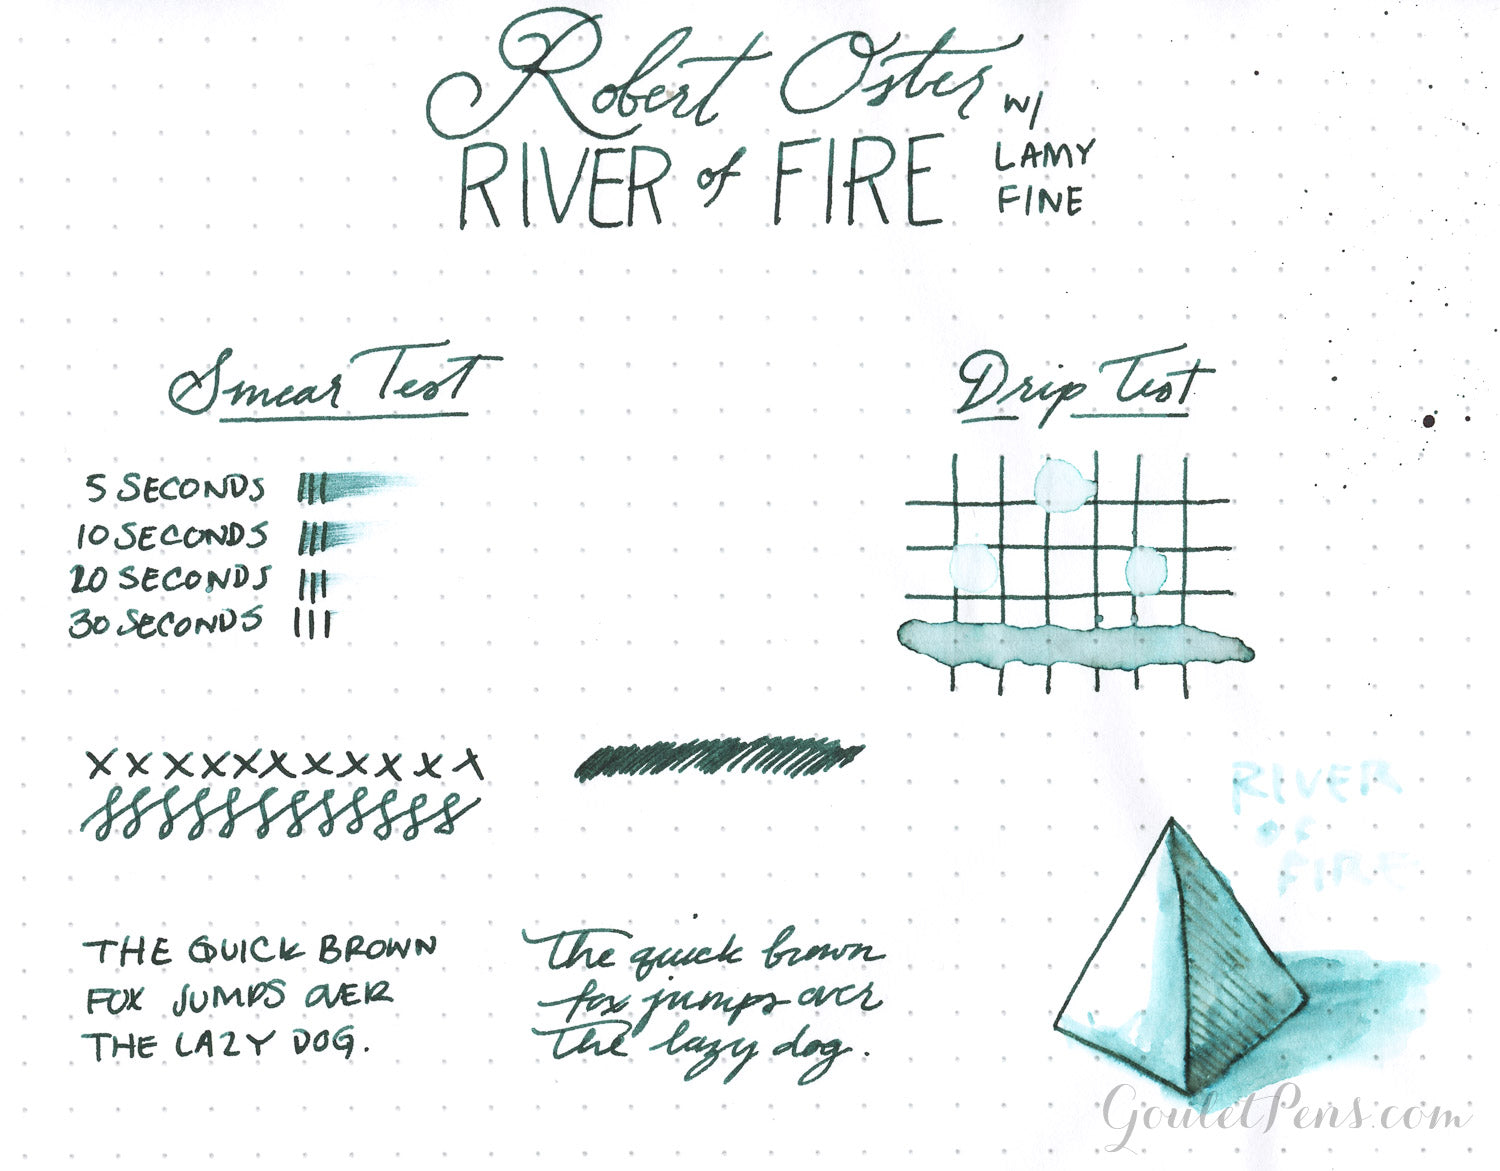 Robert Oster
RIVER of FIRE
w/
LAMY
FINE
Smear Test
Drip Test
5 SECONDS
10 SECONDS
20 SECONDS
30 SECONDS
x x x x x x x x x x x x
RIVER
OF
FIRE
THE QUICK BROWN
FOX JUMPS OVER
THE LAZY DOG.
The quick brown
fox jumps over
The lazy dog.
GouletPens.com